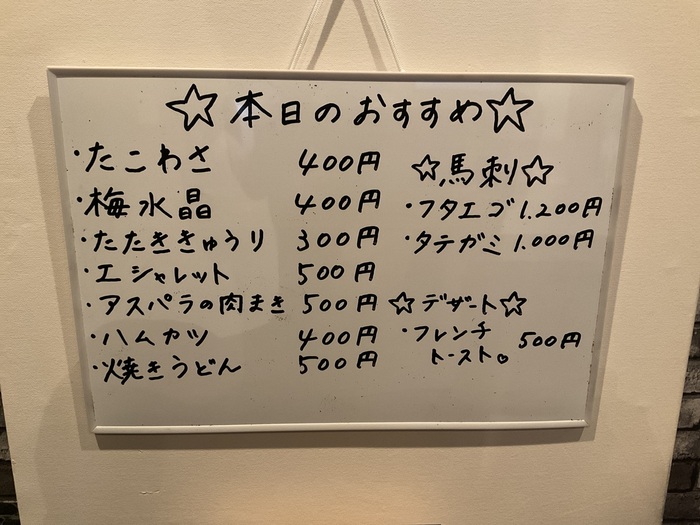 ☆本日のおすすめ☆
・たこわさ 400円
・梅水晶 400円
・たたききゅうり 300円
・エシャレット 500円
・アスパラの肉まき 500円
・ハムカツ 400円
・焼きうどん 500円
☆馬刺☆
・フタエゴ 1.200円
・タテガミ 1.000円
☆デザート☆
・フレンチ
トースト♡ 500円